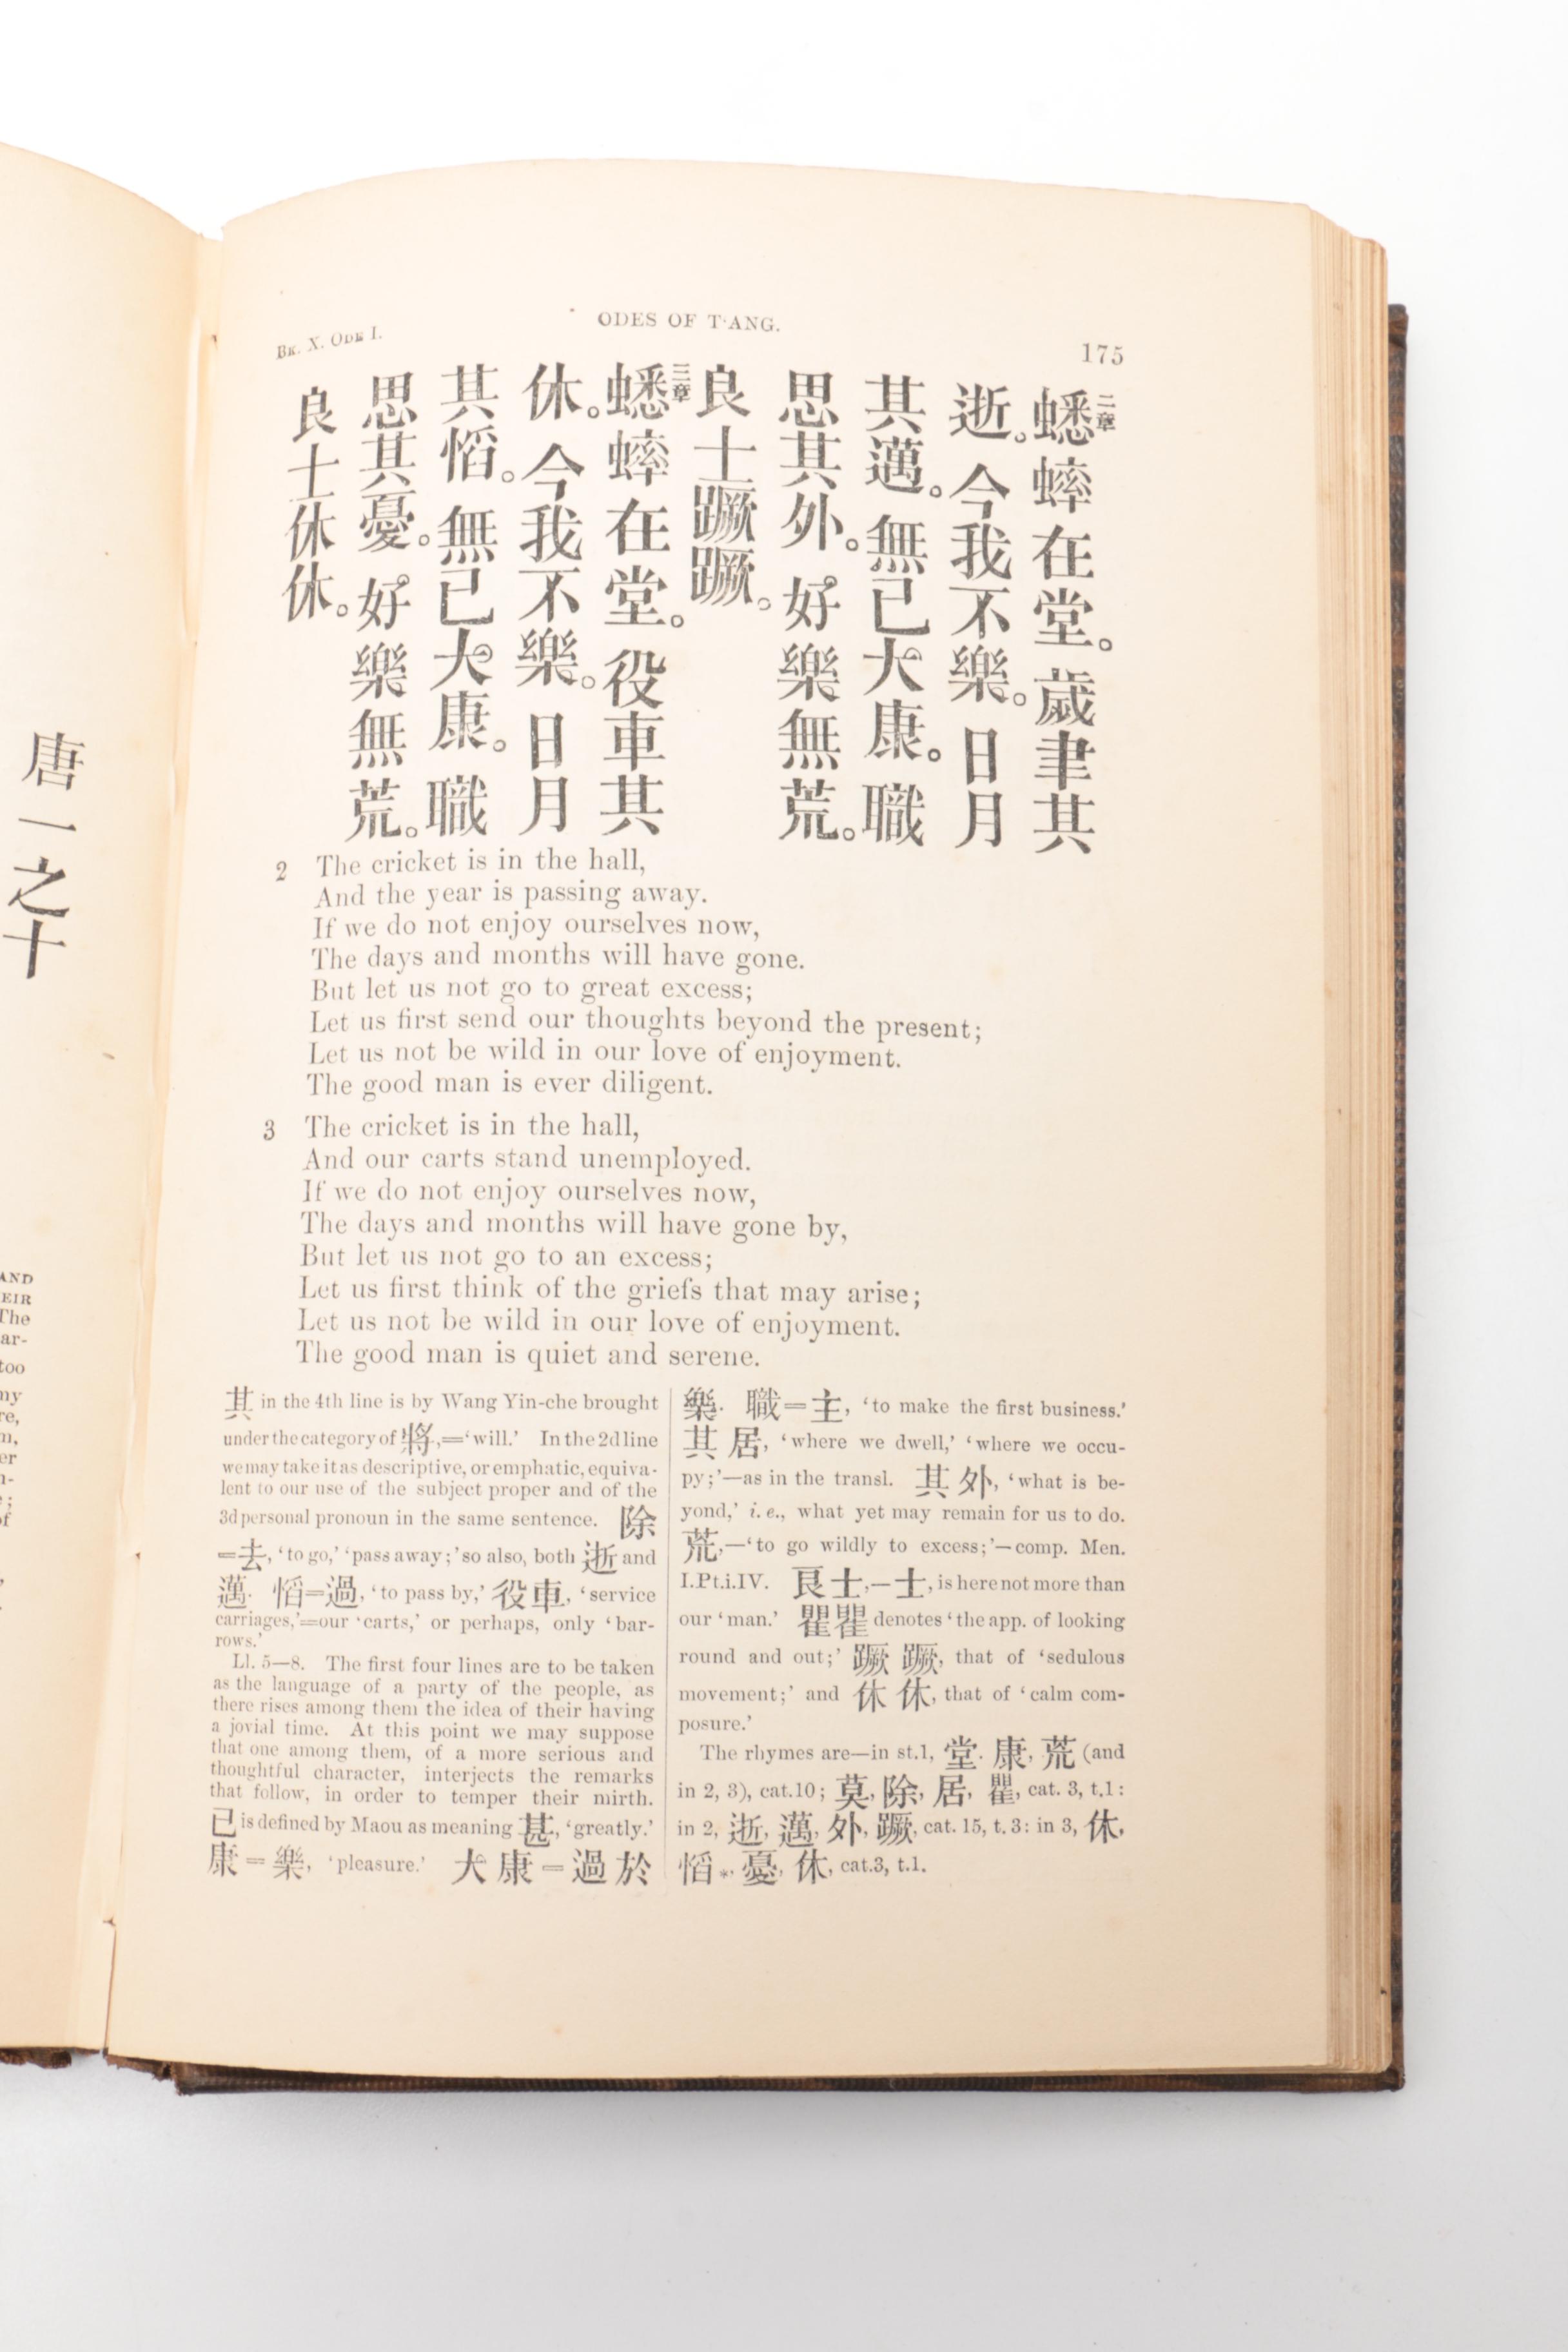 唐一之十
AND
EIR
The
ar-
too
ny
re,
BK. X. ODE I.
ODES OF T‘ANG.
175
二章
蟋蟀在堂。歲聿其
逝。今我不樂。日月
其邁。無已大康。職
思其外。好樂無荒。
良士蹶蹶。
三章
蟋蟀在堂。役車其
休。今我不樂。日月
其慆。無已大康。職
思其憂。好樂無荒。
良士休休。
2 The cricket is in the hall,
And the year is passing away.
If we do not enjoy ourselves now,
The days and months will have gone.
But let us not go to great excess;
Let us first send our thoughts beyond the present;
Let us not be wild in our love of enjoyment.
The good man is ever diligent.
3 The cricket is in the hall,
And our carts stand unemployed.
If we do not enjoy ourselves now,
The days and months will have gone by,
But let us not go to an excess;
Let us first think of the griefs that may arise;
Let us not be wild in our love of enjoyment.
The good man is quiet and serene.
其 in the 4th line is by Wang Yin-che brought
under the category of 將,=‘will.’ In the 2d line
we may take it as descriptive, or emphatic, equiva-
lent to our use of the subject proper and of the
3d personal pronoun in the same sentence. 除
=去, ‘to go,’ ‘pass away;’ so also, both 逝 and
邁. 慆=過, ‘to pass by,’ 役車, ‘service
carriages,’=our ‘carts,’ or perhaps, only ‘bar-
rows.’
Ll. 5—8. The first four lines are to be taken
as the language of a party of the people, as
there rises among them the idea of their having
a jovial time. At this point we may suppose
that one among them, of a more serious and
thoughtful character, interjects the remarks
that follow, in order to temper their mirth.
已 is defined by Maou as meaning 甚, ‘greatly.’
康=樂, ‘pleasure.’ 大康=過於
樂. 職=主, ‘to make the first business.’
其居, ‘where we dwell,’ ‘where we occu-
py;’—as in the transl. 其外, ‘what is be-
yond,’ i. e., what yet may remain for us to do.
荒,—‘to go wildly to excess;’—comp. Men.
I.Pt.i.IV. 良士,—士, is here not more than
our ‘man.’ 瞿瞿 denotes ‘the app. of looking
round and out;’ 蹶蹶, that of ‘sedulous
movement;’ and 休休, that of ‘calm com-
posure.’
The rhymes are—in st.1, 堂. 康, 荒 (and
in 2, 3), cat.10; 莫, 除, 居, 瞿, cat. 3, t.1:
in 2, 逝, 邁, 外, 蹶, cat. 15, t. 3: in 3, 休,
慆*, 憂, 休, cat.3, t.1.